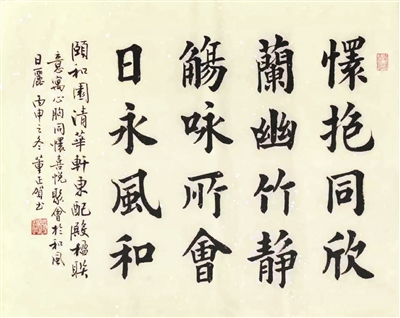 懷抱同欣
蘭幽竹静
觴咏所會
日永風和
頤和園清華軒東配殿楹联
意寓心胸同懷喜悦聚會於和風
日麗 丙申之冬 董正賀书